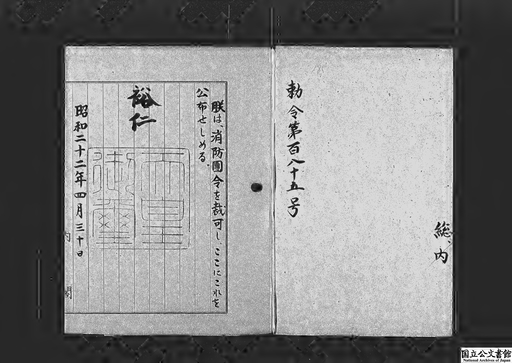 総、内
勅令第百八十五号
朕は、消防團令を裁可し、ここにこれを
公布せしめる。
裕仁
天皇
御璽
昭和二十二年四月三十日
内 閣
国立公文書館
National Archives of Japan